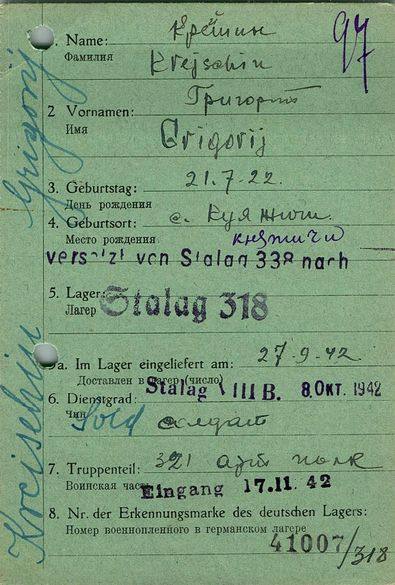 97
1. Name: Крешин
Фамилия Krejschin
2 Vornamen: Григорий
Имя Grigorij
3. Geburtstag: 21.7.22.
День рождения
4. Geburtsort: с.
Место рождения княжичи
versetzt von Stalag 338 nach
5. Lager: Stalag 318
Лагер
5a. Im Lager eingeliefert am: 27.9.42.
Доставлен в лагер (число)
Stalag VIII B. 8. Окт. 1942
6. Dienstgrad:
Чин Sold солдат
7. Truppenteil: 321 арт полк
Воинская часть
Eingang 17.11.42
8. Nr. der Erkennungsmarke des deutschen Lagers:
Номер военнопленного в германском лагере
41007/318
Kreischin Grigorij